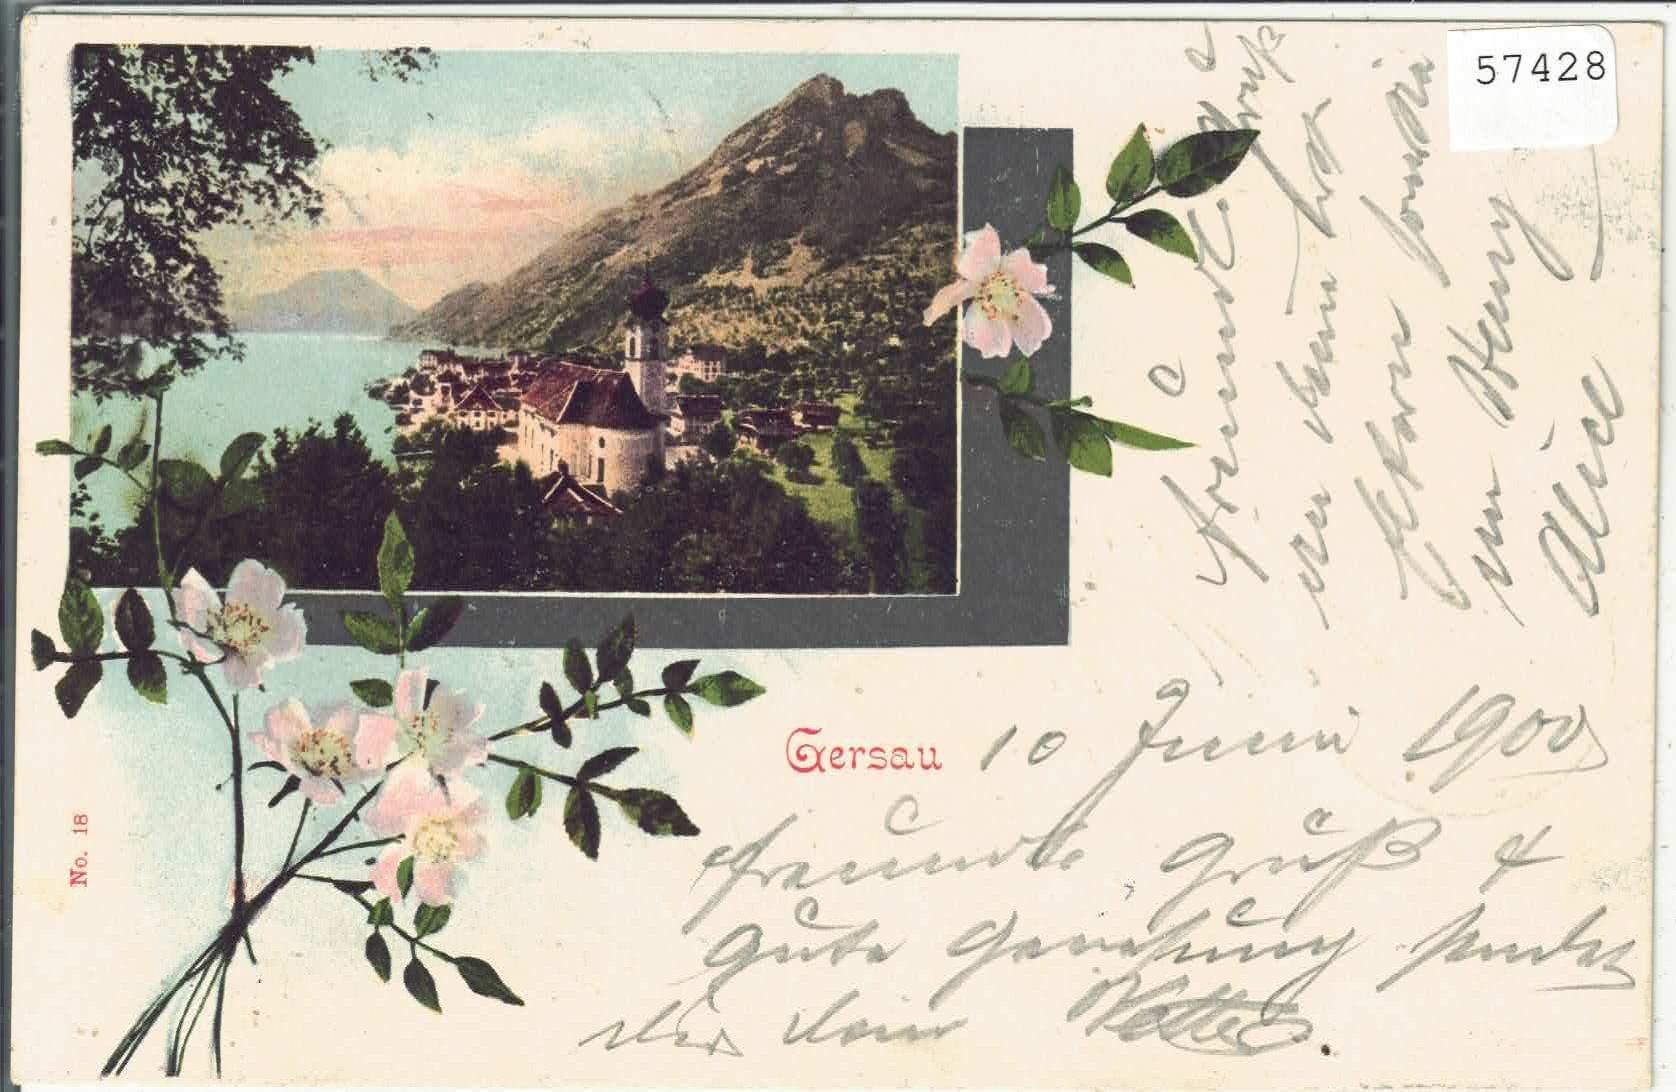 57428
Gersau 10 Juni 1900
freundl. Gruß &
gute Genesung sendet
dir dein Vetter.
Freundl. Gruß
von
Henny
Alice
No. 18